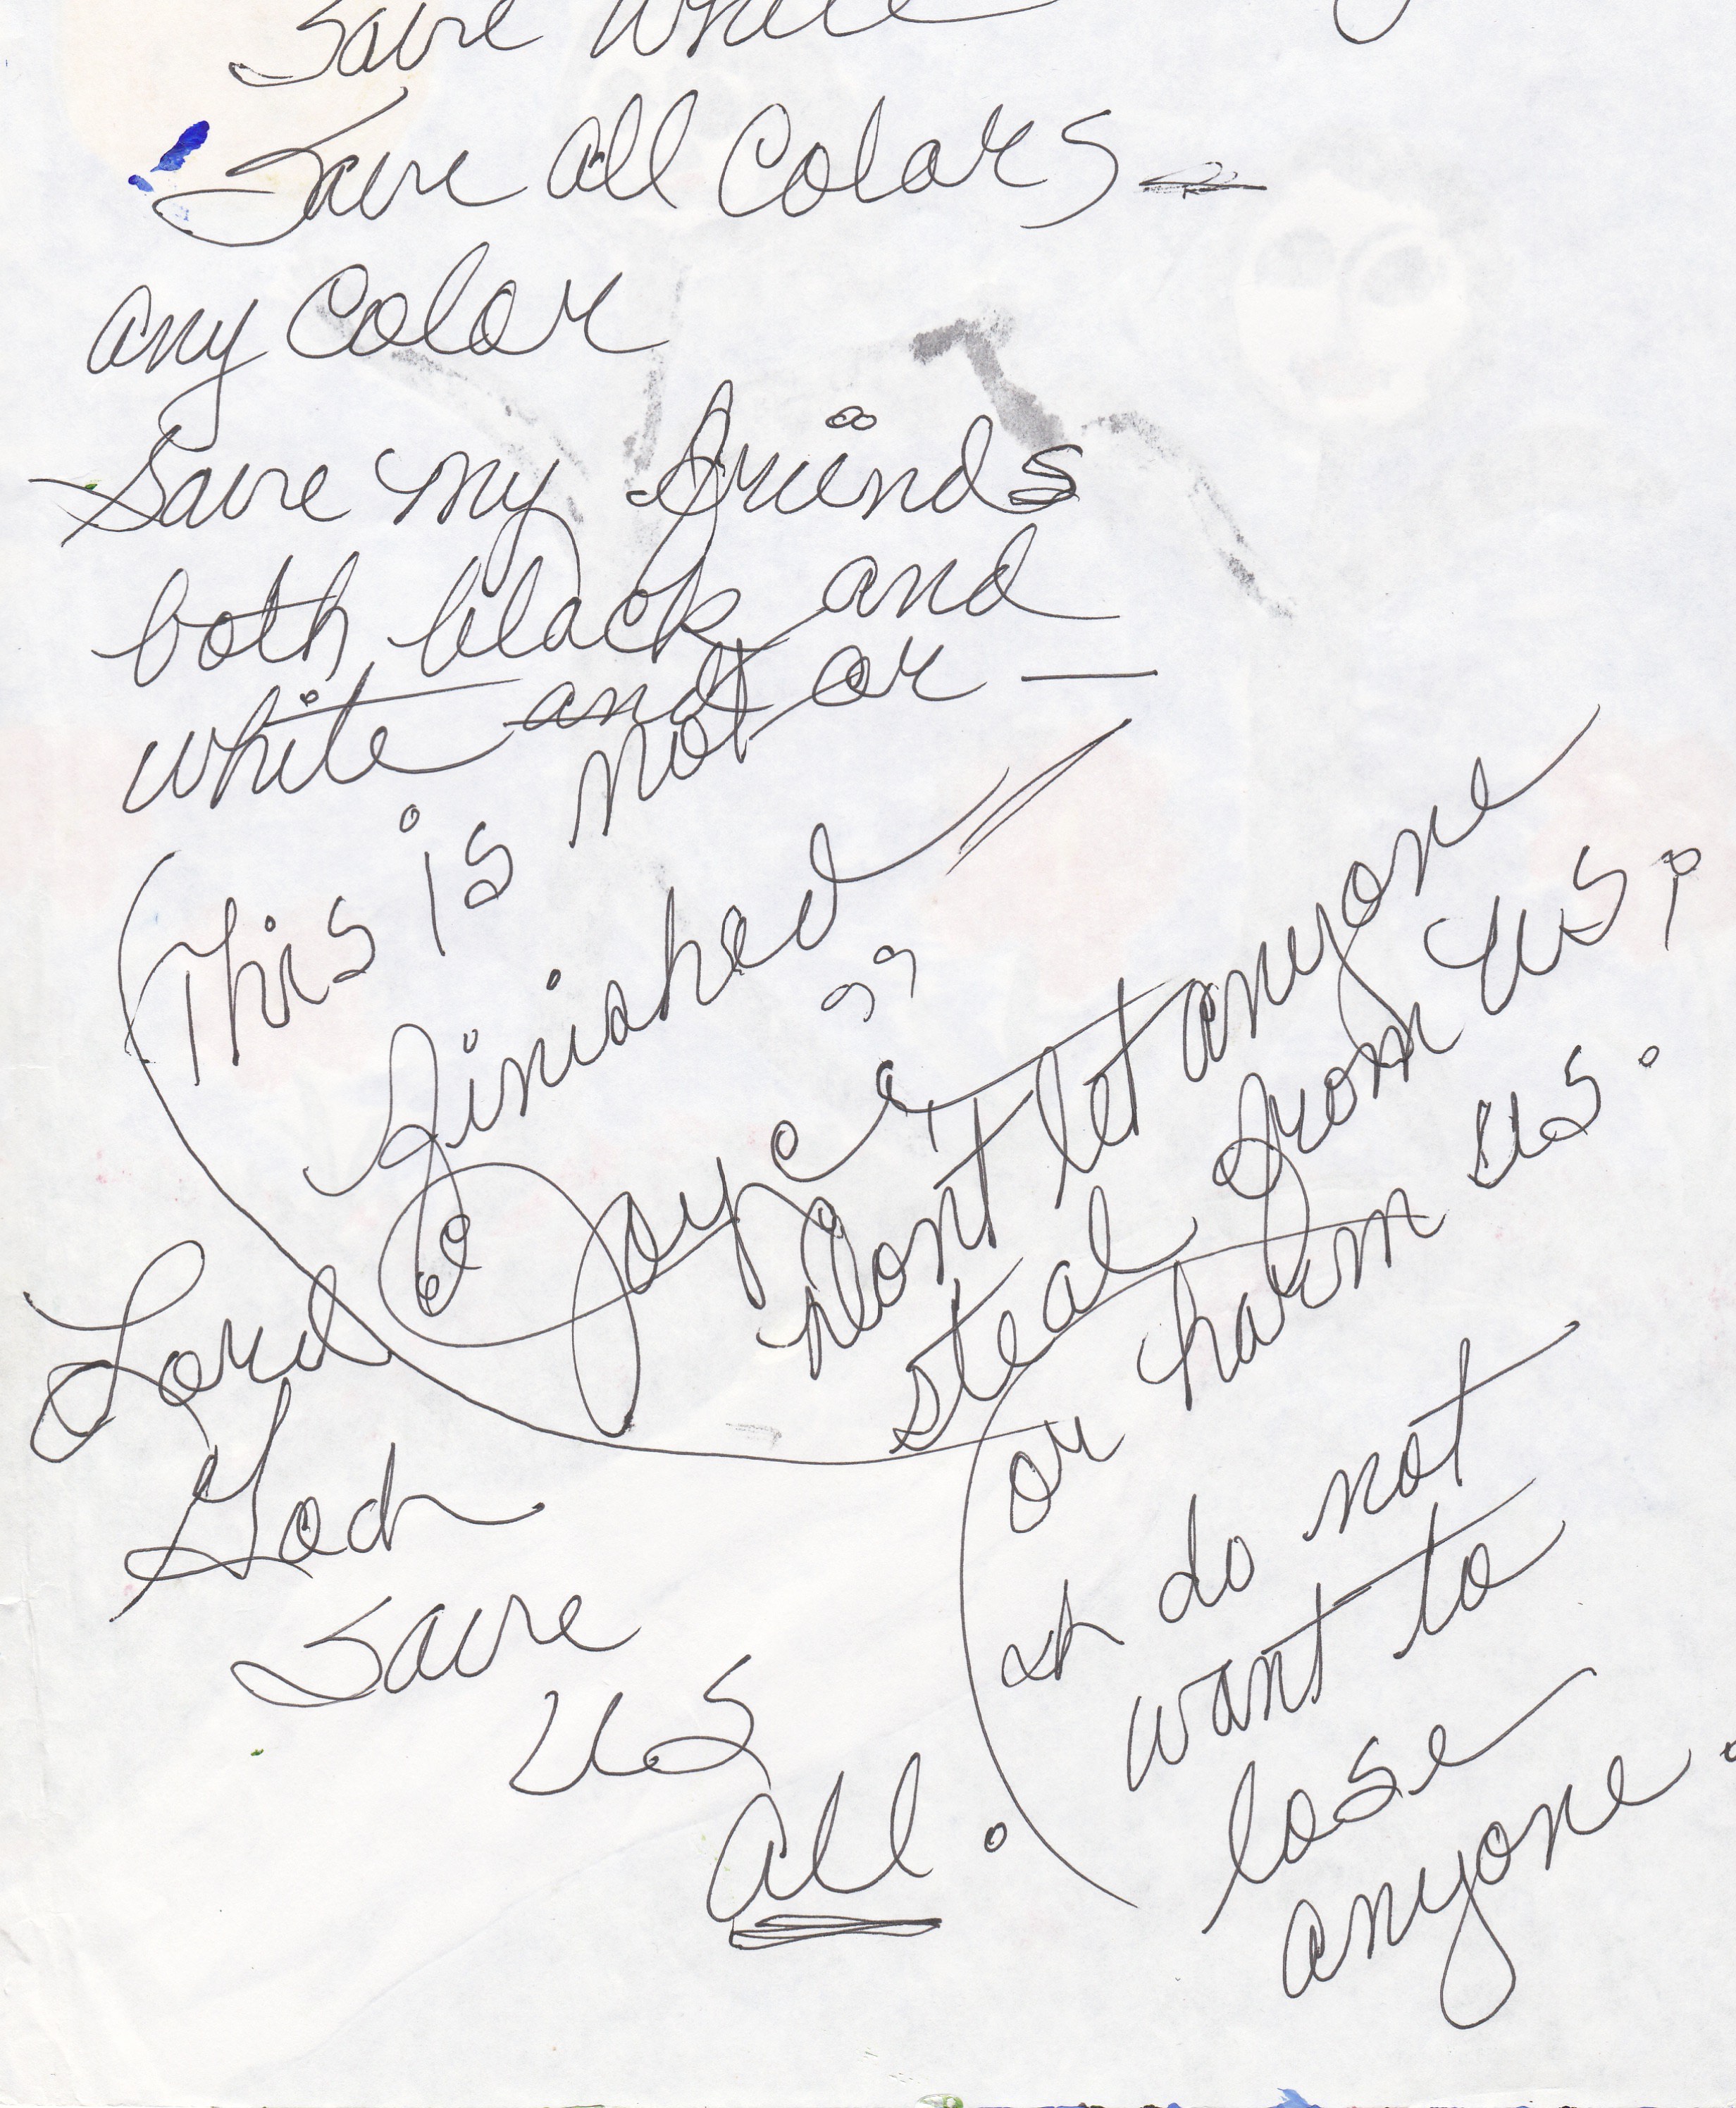 Save white
Save all Colors —
any Color
Save my friends
both black and
white and not or —
(This is
finished
Joyce,
Lord
God
Save
us
all.
Dont let anyone
steal from us,
or harm us.
(I do not
want to
lose
anyone.